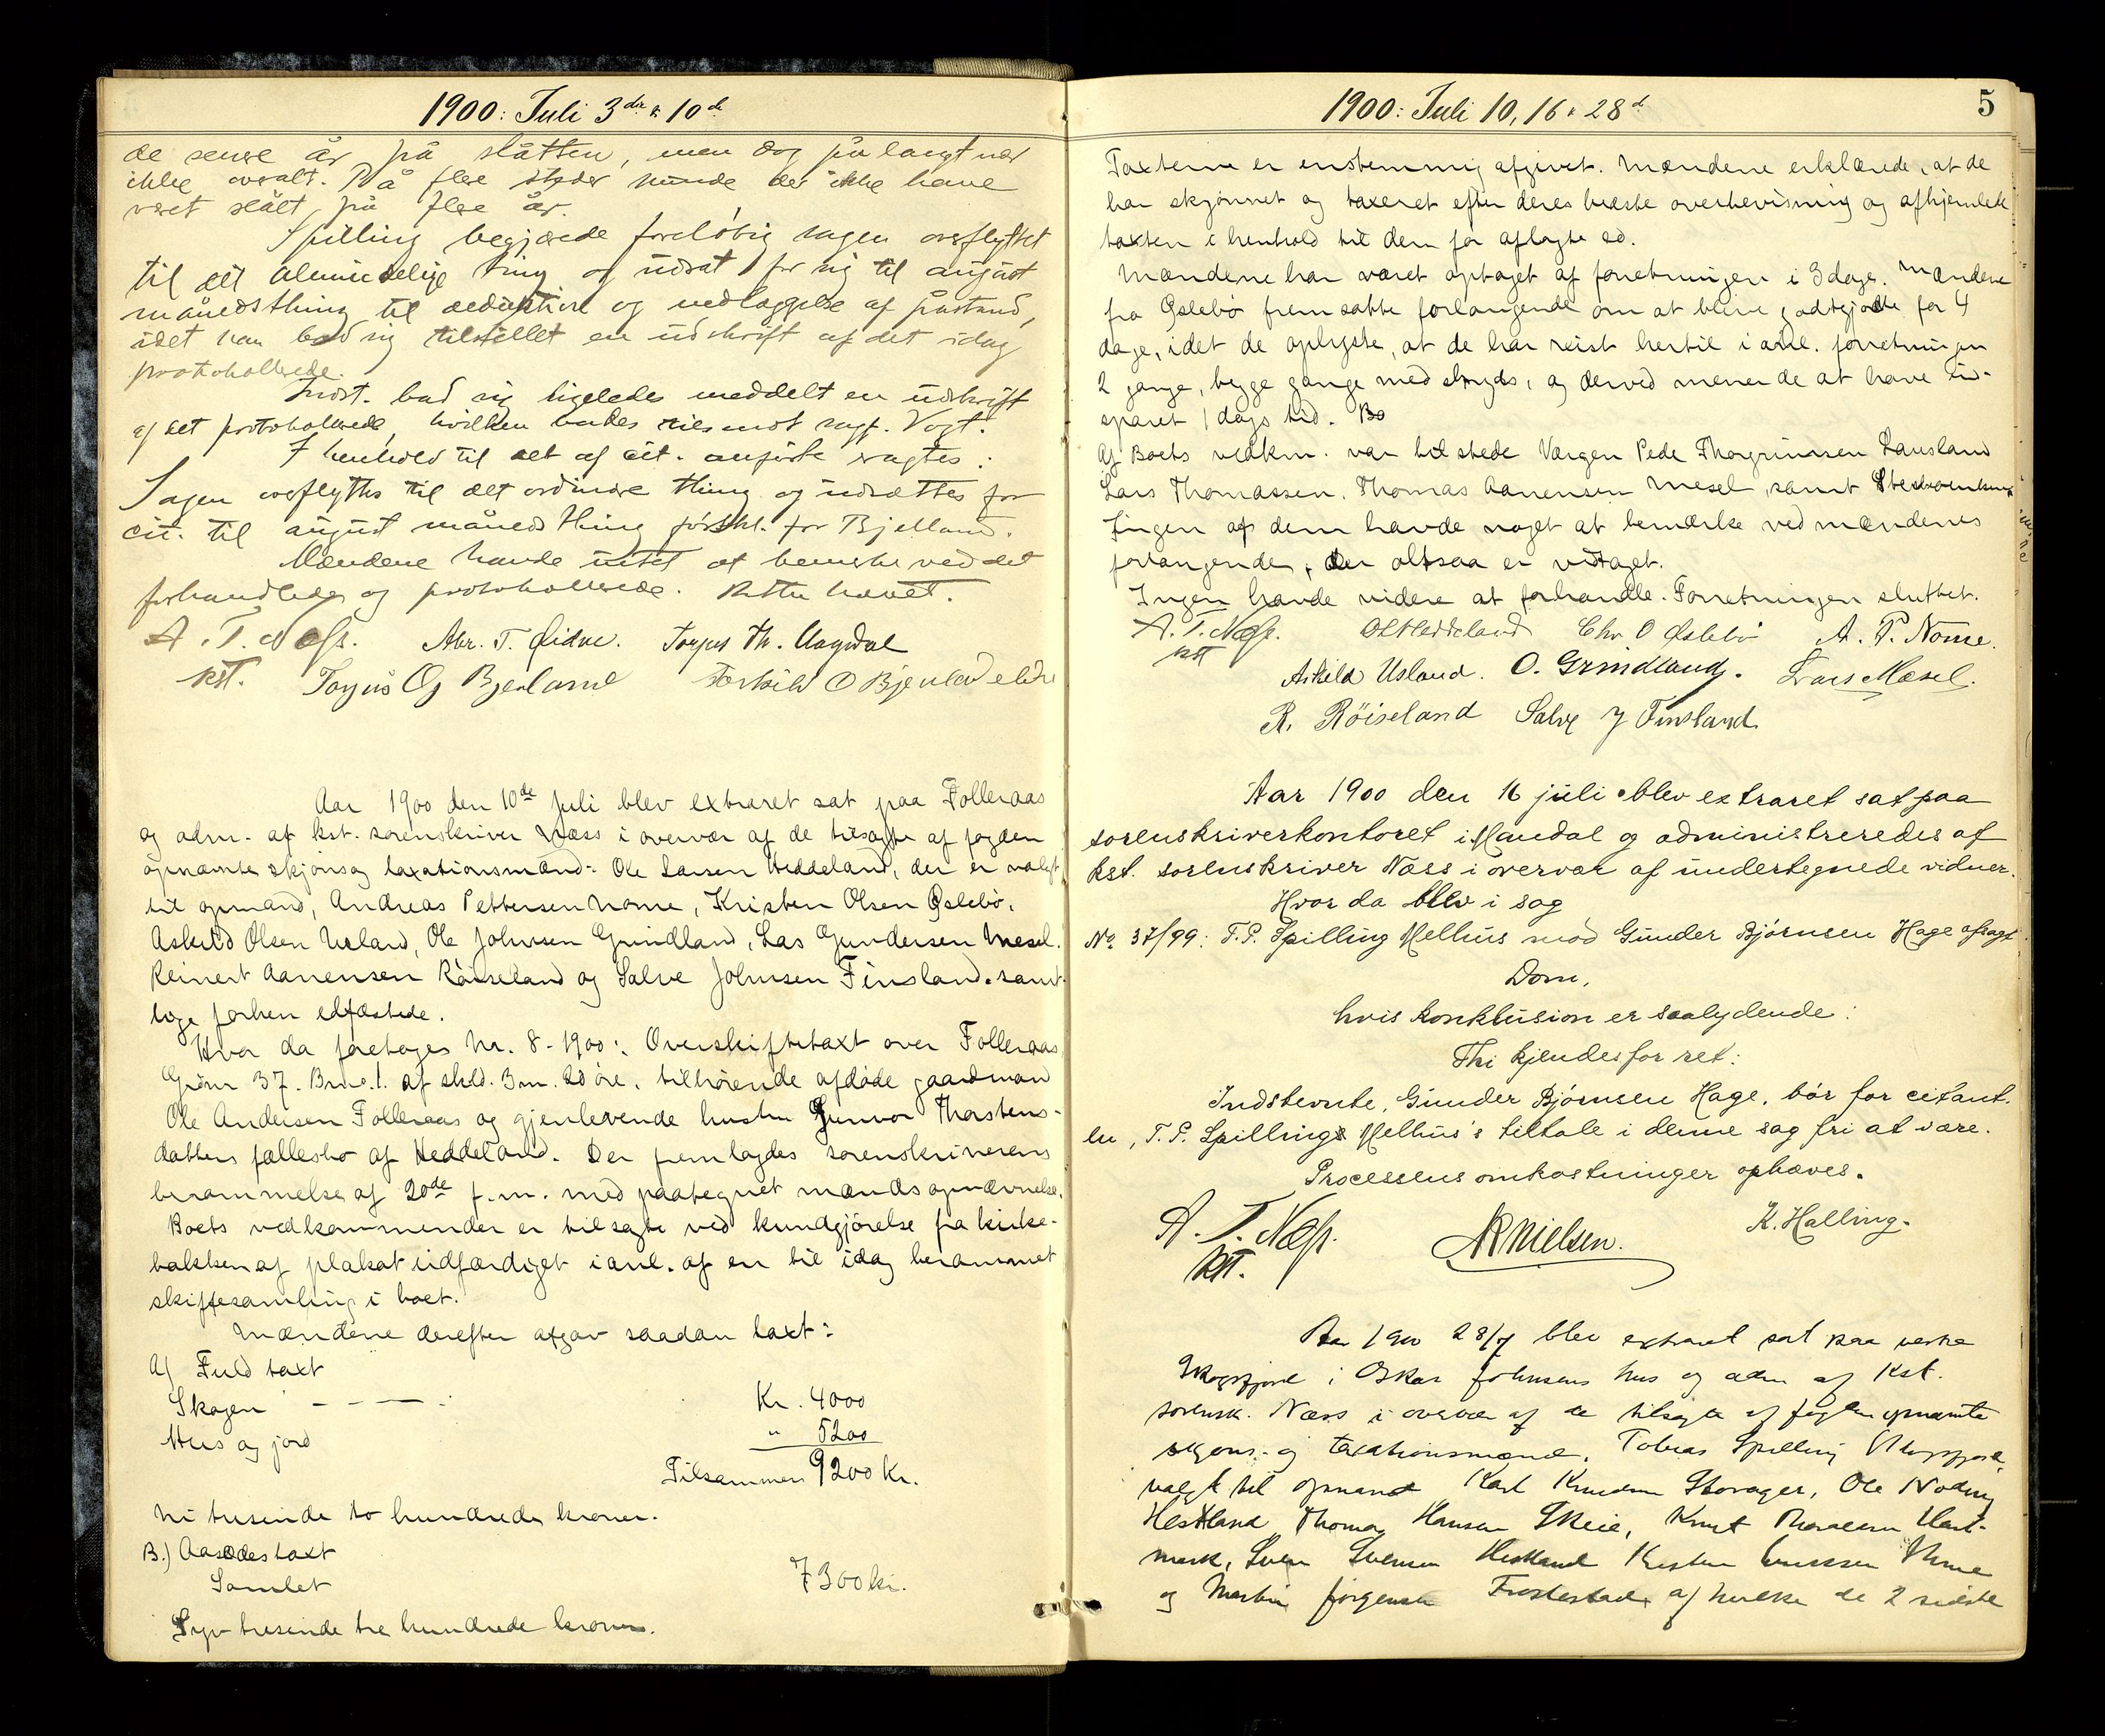 1900: Juli 3die & 10de
de senere år på slåtten, men dog på langt nær
ikke overalt. På flere steder kunde der ikke have
været slått på flere år.
Spilling begjærede foreløbig sagen overflyttet
til det almindelige thing og udsat for sig til august
månedsthing til deduktion og nedlæggelse af påstand,
idet han bad sig tilstillet en udskrift af det idag
protokollerede.
Indst. bad sig ligeledes meddelt en udskrift
af det protokollerede, hvilken bedes tilsendt sagf. Vogt.
I henhold til det af cit. anførte vragtes:
Sagen overflyttes til det ordinære thing og udsættes for
cit. til august månedsthing førstk. for Bjelland.
Mændene havde intet at bemerke ved det
forhandlede og protokollerede. Retten hævet.
A. T. Næss. Abr. T. Eidne. Torjus Th. Ougdal
kst. Torjus Og Bjerland Torkild O Bjerland eldre
Aar 1900 den 10de Juli blev extraret sat paa Folleraas
og adm. af kst. sorenskriver Næss i overvær af de tilsagte af fogden
opnævnte skjøns og taxationsmænd: Ole Larsen Heddeland, der er valgt
til opmand, Andreas Pettersen Nome, Kristen Olsen Øslebø,
Askild Olsen Usland, Ole Johnsen Grindland, Lars Gundersen Mesel.
Reinert Aanensen Røiseland og Salve Johnsen Finsland. samt-
lige forhen edfæstede.
Hvor da foretoges Nr. 8-1900: Overskiftetaxt over Folleraas
Gnrn 37. Brno. 1. af skld. 3 m. 20 øre, tilhørende afdøde gaardmand
Ole Andersen Folleraas og gjenlevende hustru Gunvor Thorstens-
datters fællesbo af Heddeland. Der fremlagdes sorenskriverens
berammelse af 20de f.m. med paategnet mændsopnævnelse.
Boets vedkommender er tilsagte ved kundgjørelse fra kirke-
bakken af plakat udfærdiget i anl. af en til idag berammet
skiftesamling i boet.
Mændene derefter afgav saadan taxt:
A) Fuld taxt
Skogen - - - . Kr. 4000
Hus og jord " 5200
Tilsammen 9200 Kr.
Ni tusinde to hundrede kroner.
B.) Aasædestaxt
Samlet 7300 kr.
Syv tusinde tre hundrede kroner.
1900: Juli 10, 16 & 28de
5
Taxterne er enstemmig afgivet. Mændene erklærede, at de
har skjønnet og taxeret efter deres bedste overbevisning og afhjemlede
taxten i henhold til den før aflagte ed.
Mændene har været optaget af forretningen i 3 dage. Mændene
fra Øslebø fremsatte forlangende om at blive godtgjorte for 4
dage, idet de oplyste, at de har reist hertil i anl. forretningen
2 gange, begge gange med skyds, og derved mener de at have ud-
sparet 1 dags tid. Bo
Af Boets vedkm. var tilstede Værgen Peder Thorgrimsen Lausland
Lars Thomassen, Thomas Aanensen Mesel, samt
Ingen af dem havde noget at bemærke ved mændenes
forlangende, der altsaa er vedtaget.
Ingen havde videre at forhandle. Forretningen sluttet.
A. T. Næss. OLHeddeland Chr O Øslebø A. P. Nome.
kst
Askild Usland. O. Grindland. Lars Mesel.
R. Røiseland Salve J Finsland
Aar 1900 den 16 juli blev extraret sat paa
sorenskriverkontoret i Mandal og administreredes af
kst. sorenskriver Næss i overvær af undertegnede vidner.
Hvor da blev i sag
No. 37/99: T. P. Spilling Melhus mod Gunder Bjørnsen Hage afsagt
Dom,
hvis konklusion er saalydende:
Thi kjendes for ret:
Indstevnte, Gunder Bjørnsen Hage, bør for citant-
en, T. P. Spilling Melhus's tiltale i denne sag fri at være.
Processens omkostninger ophæves.
A. T. Næss. Nielsen. K. Halling.
kst.
Aar 1900 28/7 blev extraret sat paa vestre
Skogsfjord i Oskar Johnsens hus og adm af kst.
sorensk. Næss i overvær af de tilsagte af fogden opnævnte
skjøns- og taxationsmænd. Tobias Spilling Skogsfjord,
valgt til opmand Karl Knudsen Storager, Ole Noding
Hestland Thomas Hansen Skeie, Knut Hart-
mark, Sven Svensen Hesland Kristen
og Martin Jørgensen Frostestad, af hvilke de 2 sidste